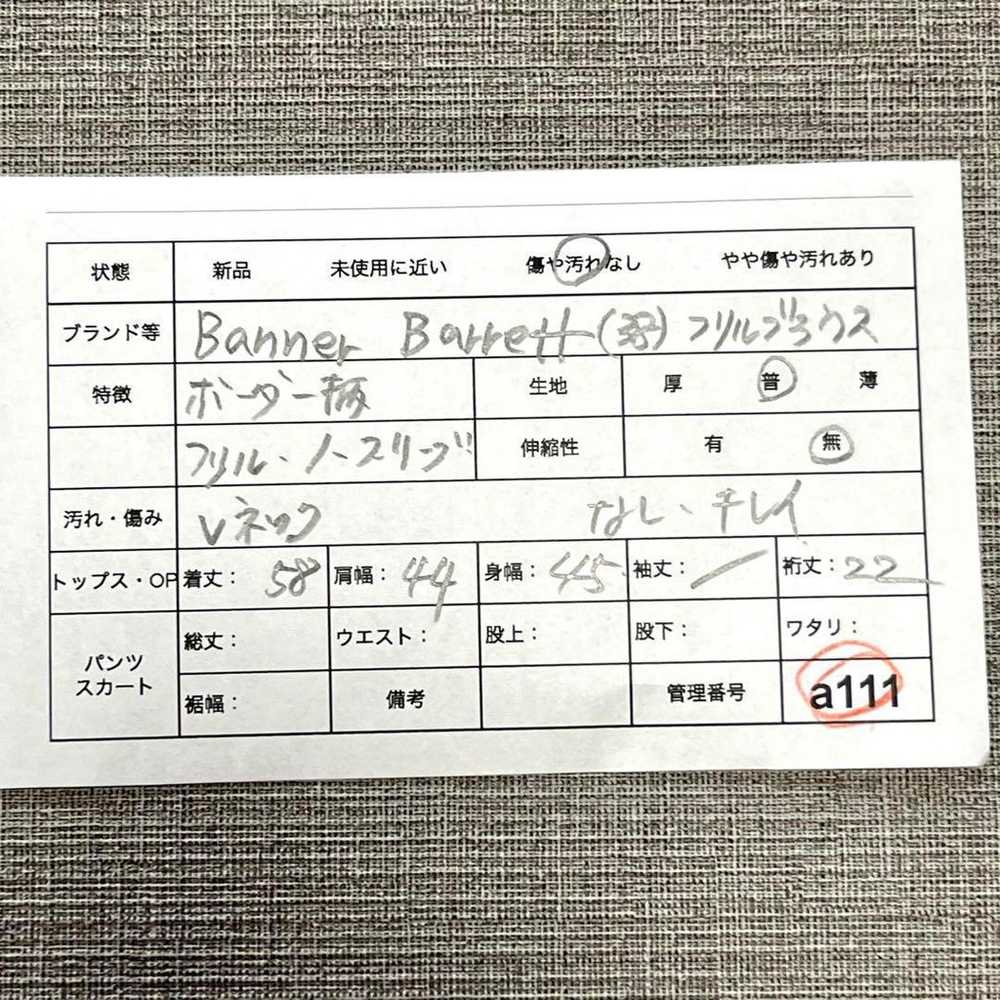 状態 新品 未使用に近い 傷や汚れなし やや傷や汚れあり
ブランド等 Banner Barrett フリルブラウス
特徴 ボーダー柄 生地 厚 普 薄
フリル・ノースリーブ 伸縮性 有 無
汚れ・傷み Vネック なし・キレイ
トップス・OP 着丈: 58 肩幅: 44 身幅: 45 袖丈: ／ 裄丈: 22
パンツ スカート 総丈: ウエスト: 股上: 股下: ワタリ:
裾幅: 備考 管理番号 a111